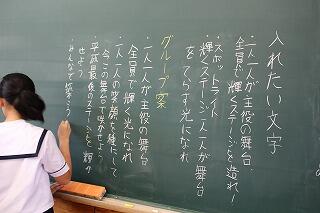 入れたい文字
・一人一人が主役の舞台
全員で輝くステージを造れ!
・スポットライト
輝くステージ一人一人が舞台
をてらす光になれ
グループ案
・一人一人が主役の舞台
全員で輝く光になれ
・一人一人の笑顔を種にして
今この舞台で咲かせよう
・平成最後のステージを
せよう
・みんなで